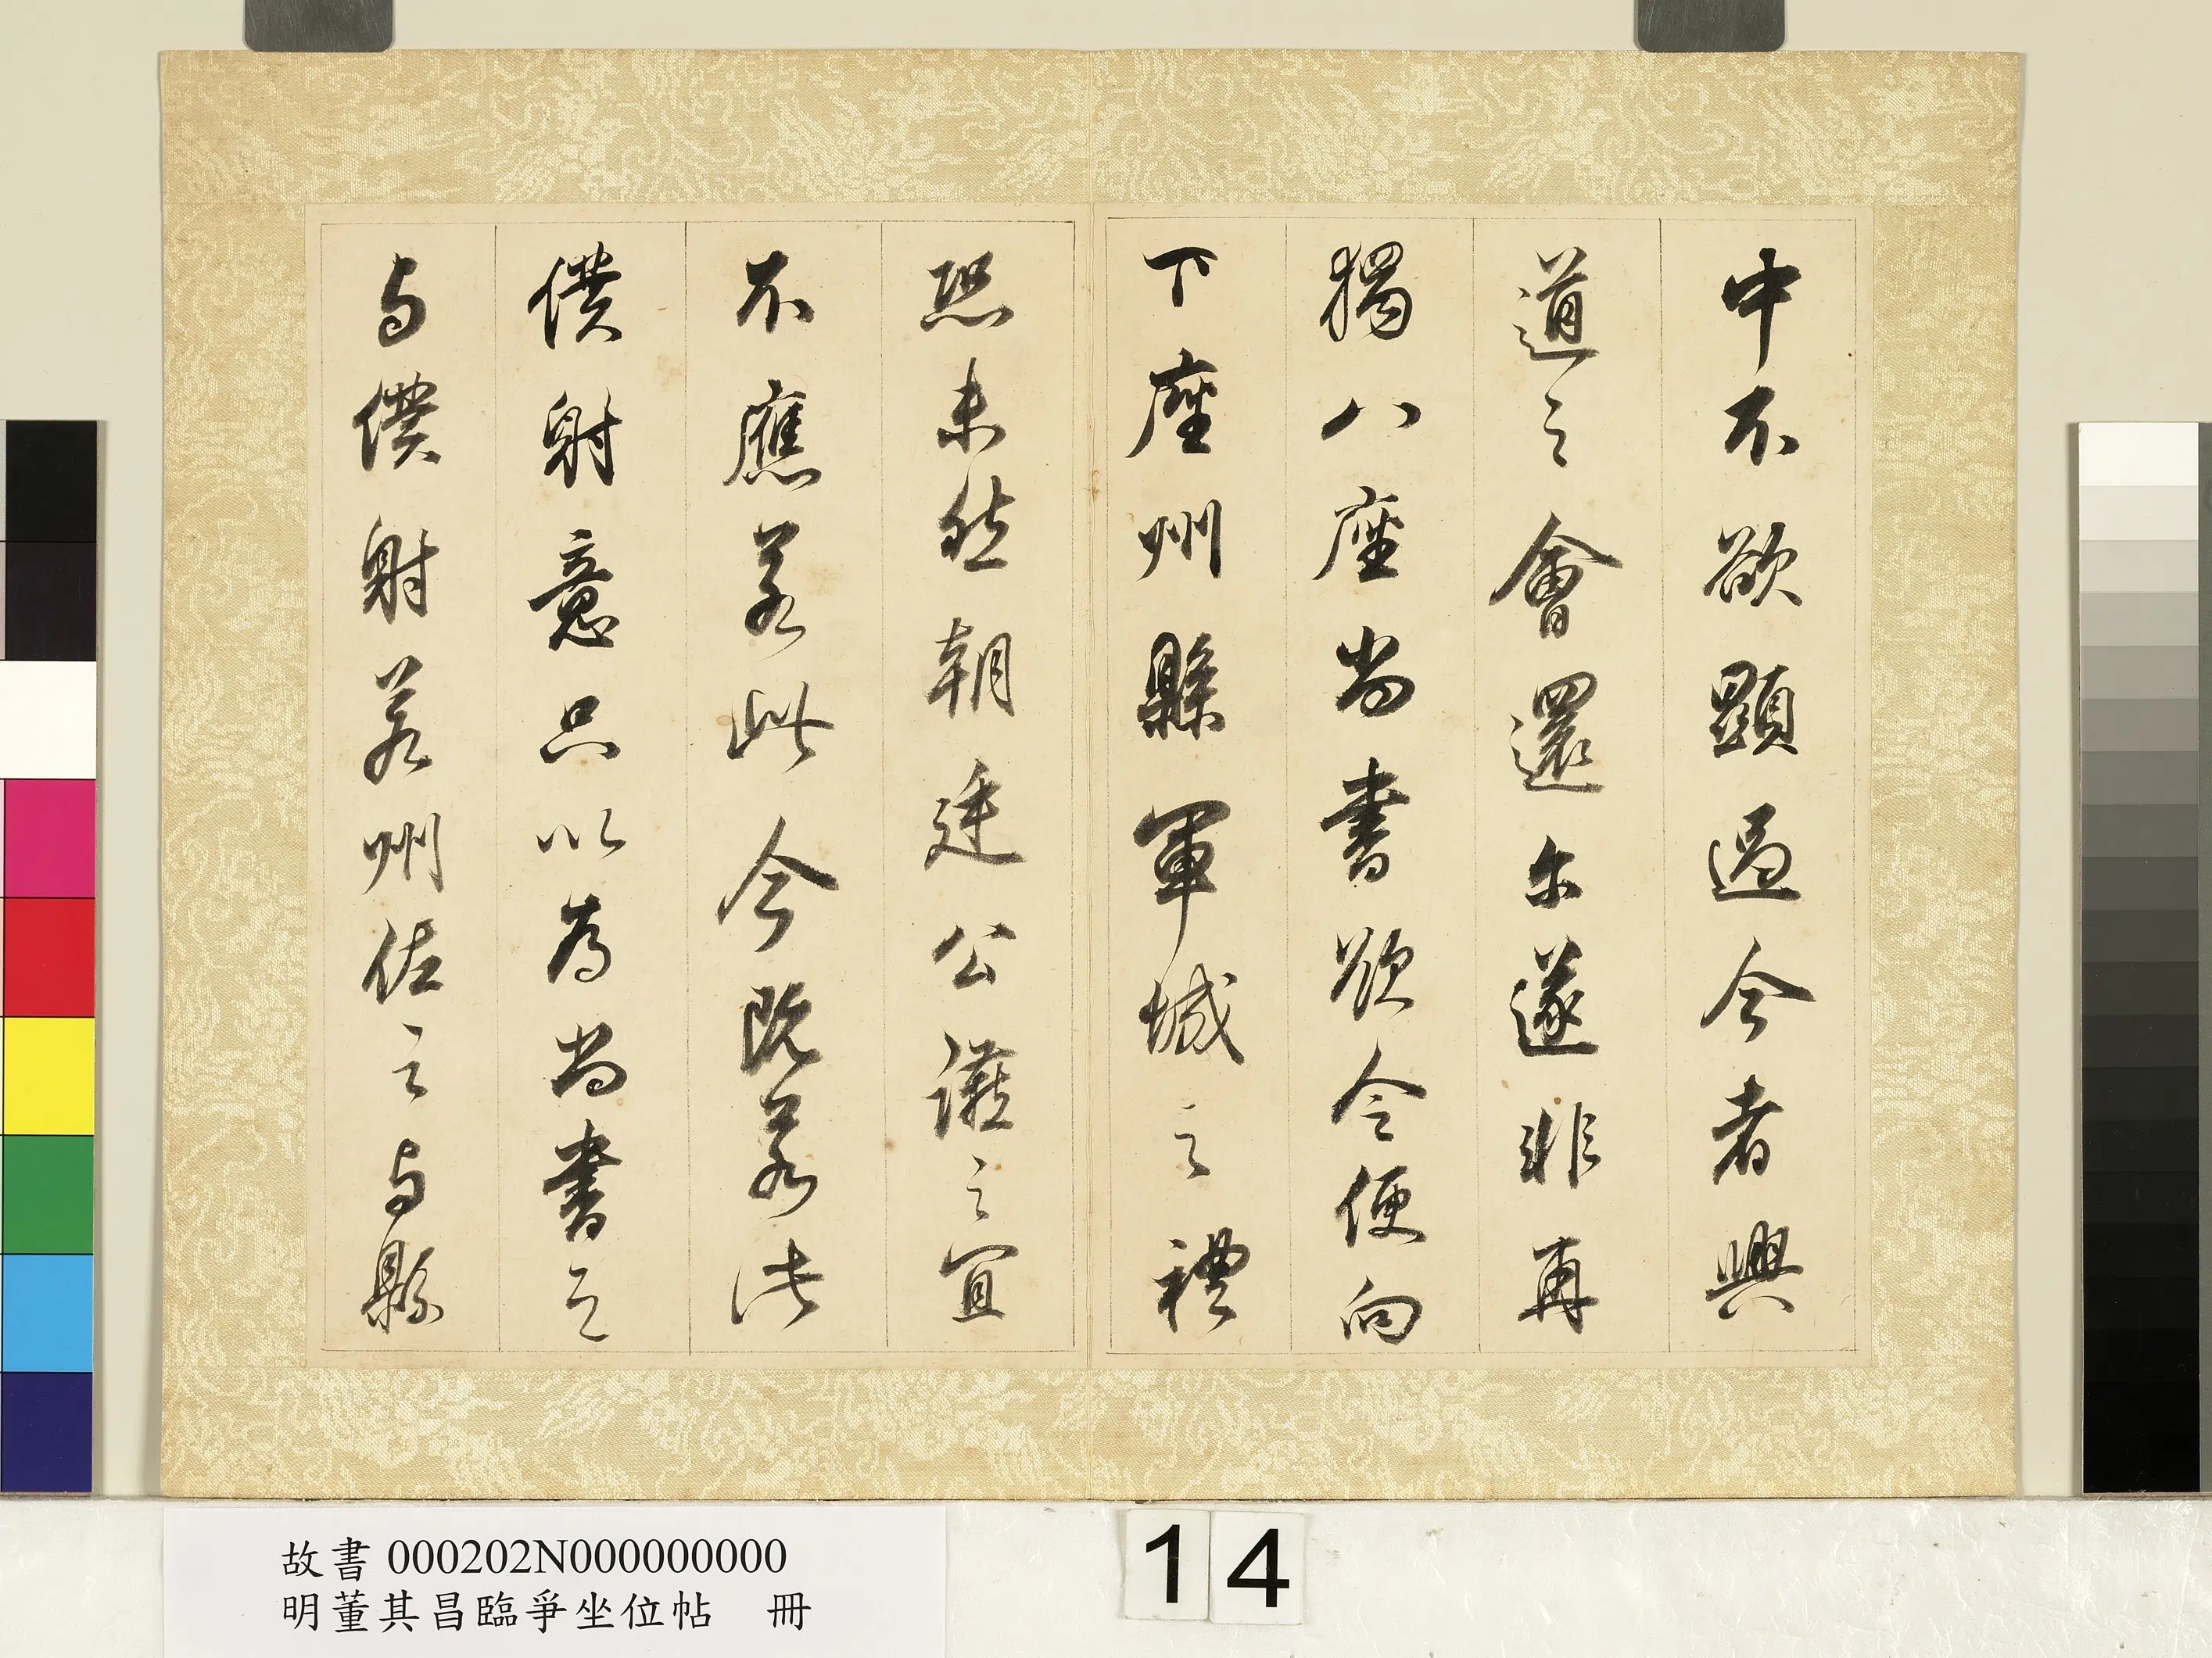 中不欲顯過今者興
道之會還尓遂非再
獨八座尚書欲令便向
下座州縣軍城之禮
恐未然朝廷公讌之宜
不應若此今既若此
僕射意只以為尚書之
与僕射若州佐之与縣
故書000202N000000000
明董其昌臨爭坐位帖 冊
14